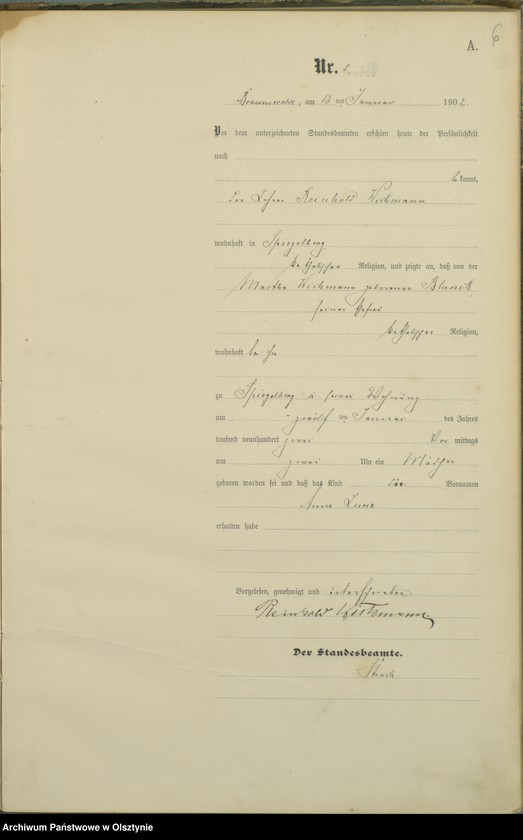 6
A.
Nr. 5.
Braunswalde, am 13 ten Januar 1902.
Vor dem unterzeichneten Standesbeamten erschien heute der Persönlichkeit
nach
bekannt,
der Lehrer Reinhold Wichmann
wohnhaft in Spiegelberg
katholischer Religion, und zeigte an, daß von der
Martha Wichmann geborenen
seiner Ehefrau
katholischer Religion,
wohnhaft bei ihm
zu Spiegelberg in seiner Wohnung
am zwölf ten Januar des Jahres
tausend neunhundert zwei Vor mittags
um zwei Uhr ein Mädchen
geboren worden sei und daß das Kind die Vornamen
Anna Lucia
erhalten habe
Vorgelesen, genehmigt und unterschrieben
Reinhold Wichmann
Der Standesbeamte.
Archiwum Państwowe w Olsztynie